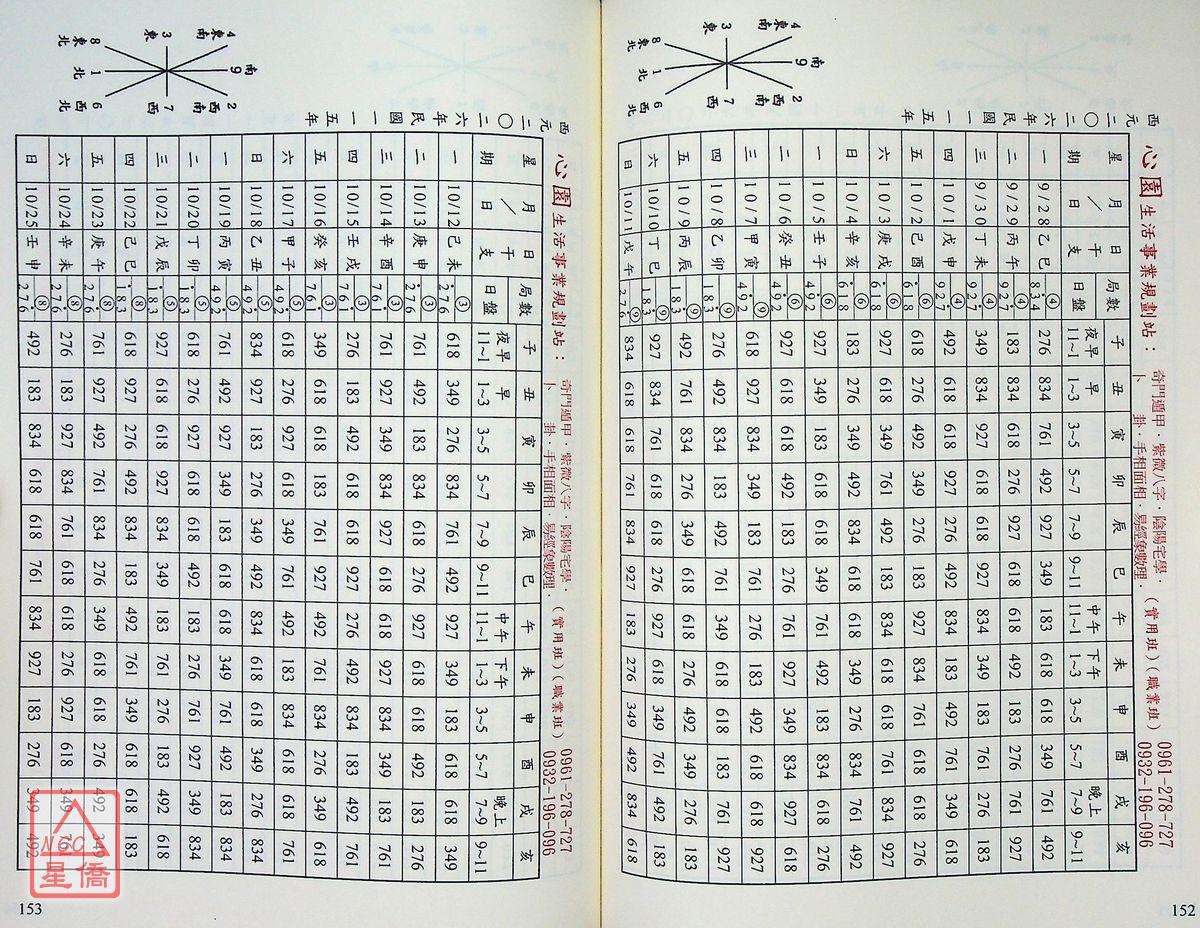 西元二〇二六年 民國一一五年
心園生活事業規劃站： 奇門遁甲．紫微八字．陰陽宅學． 卜卦．手相面相．易經象數理． （實用班）（職業班） 0961-278-727 0932-196-096
4 東南 3 東 8 東北 1 北 6 西北 7 西 2 西南 9 南
星期 月/日 日干支 局數日盤 子夜早11~1 丑早1~3 寅3~5 卯5~7 辰7~9 巳9~11 午中午11~1 未下午1~3 申3~5 酉5~7 戌晚上7~9 亥9~11
一 9/28 乙巳 ④ 834 276 834 761 492 927 349 183 618 618 349 761 492
二 9/29 丙午 ④ 183 834 618 276 927 618 834 492 183 276 761 927
三 9/30 丁未 ④ 927 349 834 927 183 618 927 834 618 183 761 276 183
四 10/1 戊申 ④ 927 927 492 618 834 276 492 834 183 492 761 349 618
五 10/2 己酉 ⑥ 618 618 276 349 927 276 183 927 834 761 618 618 276
六 10/3 庚戌 ⑥ 618 927 618 349 761 492 183 834 618 618 927 349 927
日 10/4 辛亥 ⑥ 618 183 276 349 492 834 618 618 349 276 834 761 492
一 10/5 壬子 ⑥ 492 349 618 183 618 618 349 761 492 183 834 618 276
二 10/6 癸丑 ⑥ 492 927 618 492 618 183 276 761 927 349 834 492 618
三 10/7 甲寅 ⑨ 492 618 927 834 349 183 183 276 618 492 927 183 927
四 10/8 乙卯 ⑨ 183 276 492 834 183 492 761 349 761 618 183 834 761
五 10/9 丙辰 ⑨ 183 492 761 834 276 349 618 618 927 492 349 618 183
六 10/10 丁巳 ⑨ 183 927 834 761 618 927 276 927 618 349 761 492 183
日 10/11 戊午 ⑨ 276 834 618 618 761 834 927 183 276 349 492 834 618
152
西元二〇二六年 民國一一五年
心園生活事業規劃站： 奇門遁甲．紫微八字．陰陽宅學． 卜卦．手相面相．易經象數理． （實用班）（職業班） 0961-278-727 0932-196-096
4 東南 3 東 8 東北 1 北 6 西北 7 西 2 西南 9 南
星期 月/日 日干支 局數日盤 子夜早11~1 丑早1~3 寅3~5 卯5~7 辰7~9 巳9~11 午中午11~1 未下午1~3 申3~5 酉5~7 戌晚上7~9 亥9~11
一 10/12 己未 ③ 276 618 349 276 834 761 492 927 349 183 618 618 349
二 10/13 庚申 ③ 276 761 492 183 834 618 276 927 618 618 492 183 927
三 10/14 辛酉 ③ 761 761 927 349 834 927 618 618 927 834 349 183 761
四 10/15 壬戌 ③ 761 276 183 492 618 618 927 276 492 834 183 492 761
五 10/16 癸亥 ③ 761 349 618 618 183 761 927 276 761 834 276 349 618
六 10/17 甲子 ⑤ 492 618 276 927 618 349 761 492 183 834 618 618 761
日 10/18 乙丑 ⑤ 492 834 927 183 276 349 492 834 618 618 349 276 834
一 10/19 丙寅 ⑤ 492 761 492 927 349 183 618 618 349 761 492 183 834
二 10/20 丁卯 ⑤ 183 618 276 927 349 618 492 183 276 761 927 349 834
三 10/21 戊辰 ⑤ 183 927 618 618 927 834 349 183 761 276 183 492 618
四 10/22 己巳 ⑧ 183 618 927 276 492 834 183 492 761 349 618 618 183
五 10/23 庚午 ⑧ 276 761 927 492 761 834 276 349 618 618 276 492 349
六 10/24 辛未 ⑧ 276 276 183 927 834 761 618 618 276 927 618 349 761
日 10/25 壬申 ⑧ 276 492 183 834 618 618 761 834 927 183 276 349 492
NCC
星僑
153